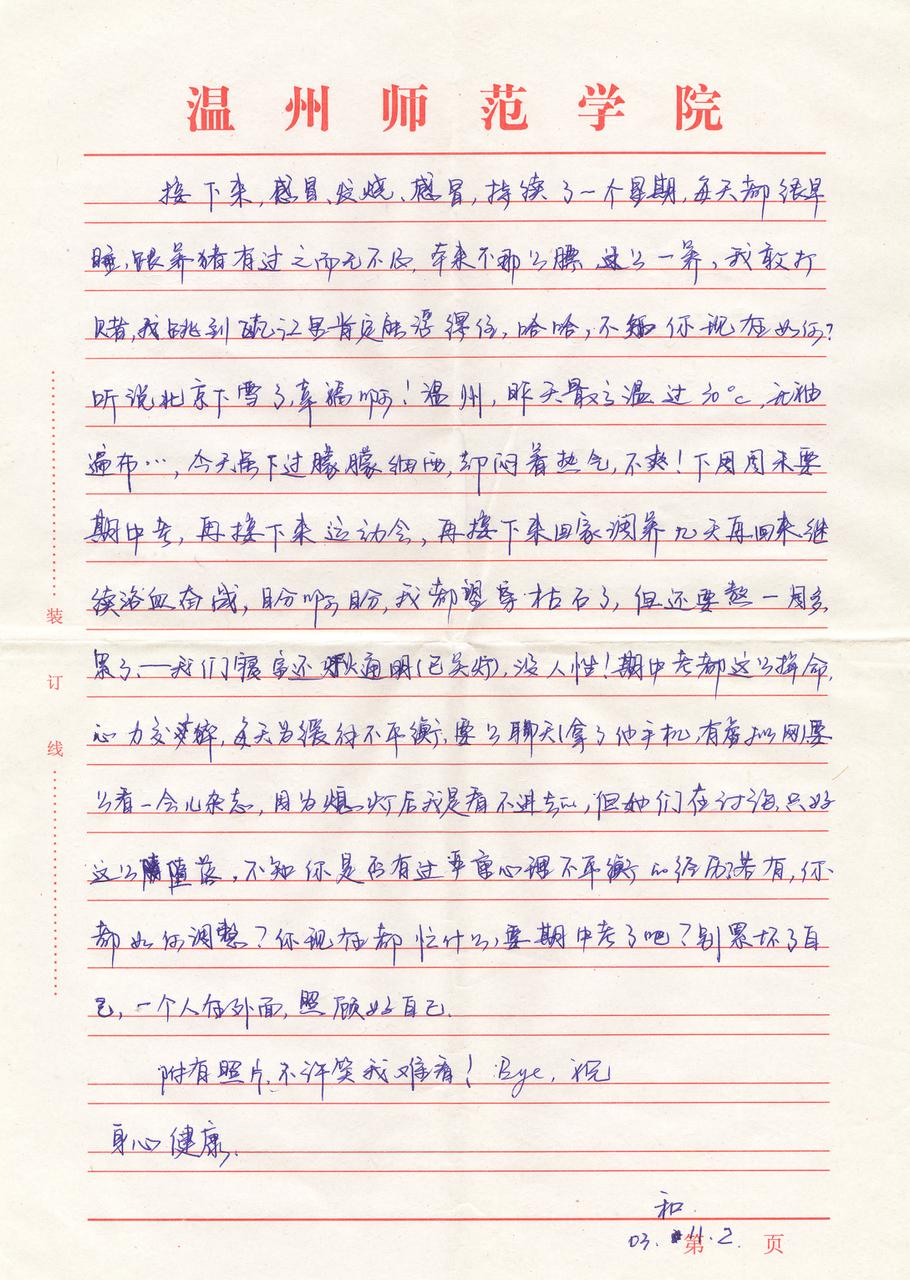 温州师范学院
接下来,感冒、发烧、感冒,持续了一个星期,每天都很早
睡,跟养猪有过之而无不及,本来不那么腰这么一养,我敢打
赌,我跳到瓯江里肯定能浮得住,哈哈,不知你现在如何?
听说北京下雪了,幸福啊!温州,昨天最高温过30°c,短袖
遍布…,今天虽下过朦朦细雨,却闷着热气,不爽!下周周末要
期中考,再接下来运动会,再接下来回家调养几天再回来继
续浴血奋战,盼啊盼,我都望穿枯石了,但还要熬一周多,
累了.—我们寝室还灯火通明(已关灯),没人性!期中考都这么拼命,
心力交瘁,每天为缓付不平衡,要么聊天(拿了他手机,有虚拟网)要
么看一会儿杂志,因为熄灯后我是看不进去的,但她们在讨论,只好
这么堕落,不知你是否有过严重心理不平衡的经历?若有,你
都如何调整?你现在都忙什么,要期中考了吧?别累坏了自
己,一个人在外面,照顾好自己.
附有照片,不许笑我难看!Bye,祝
身心健康.
和
03.11.2.
第 页
装
订
线